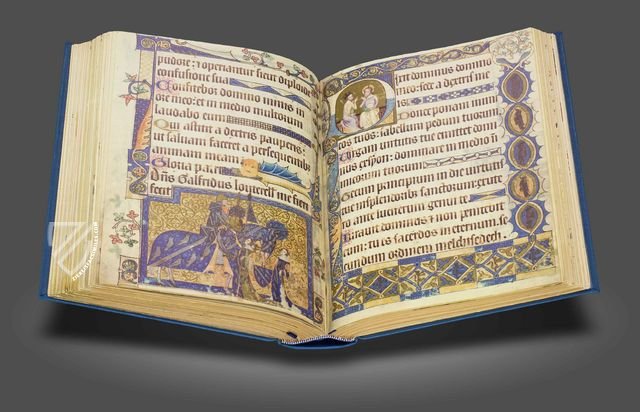 pudore: et operiantur sicut diploide
confusione sua
Confitebor domino nimis in
ore meo: et in medio multorum
laudabo eum
Qui astitit a dextris pauperis:
ut salvam faceret a persequentibus
animam meam
Gloria patri
Dns Galfridus louterell me fieri
fecit
Dixit dominus domino
meo: sede a dextris meis
Donec ponam inimi
cos tuos: scabellum pedum tuorum
Virgam virtutis tue emittet domi
nus ex syon: dominare in medio i
nimicorum tuorum
Tecum principium in die virtutis
tue in splendoribus sanctorum: ex ute
ro ante luciferum genui te
Iuravit dominus et non penitebit
eum: tu es sacerdos in eternum se
cundum ordinem melchisedech